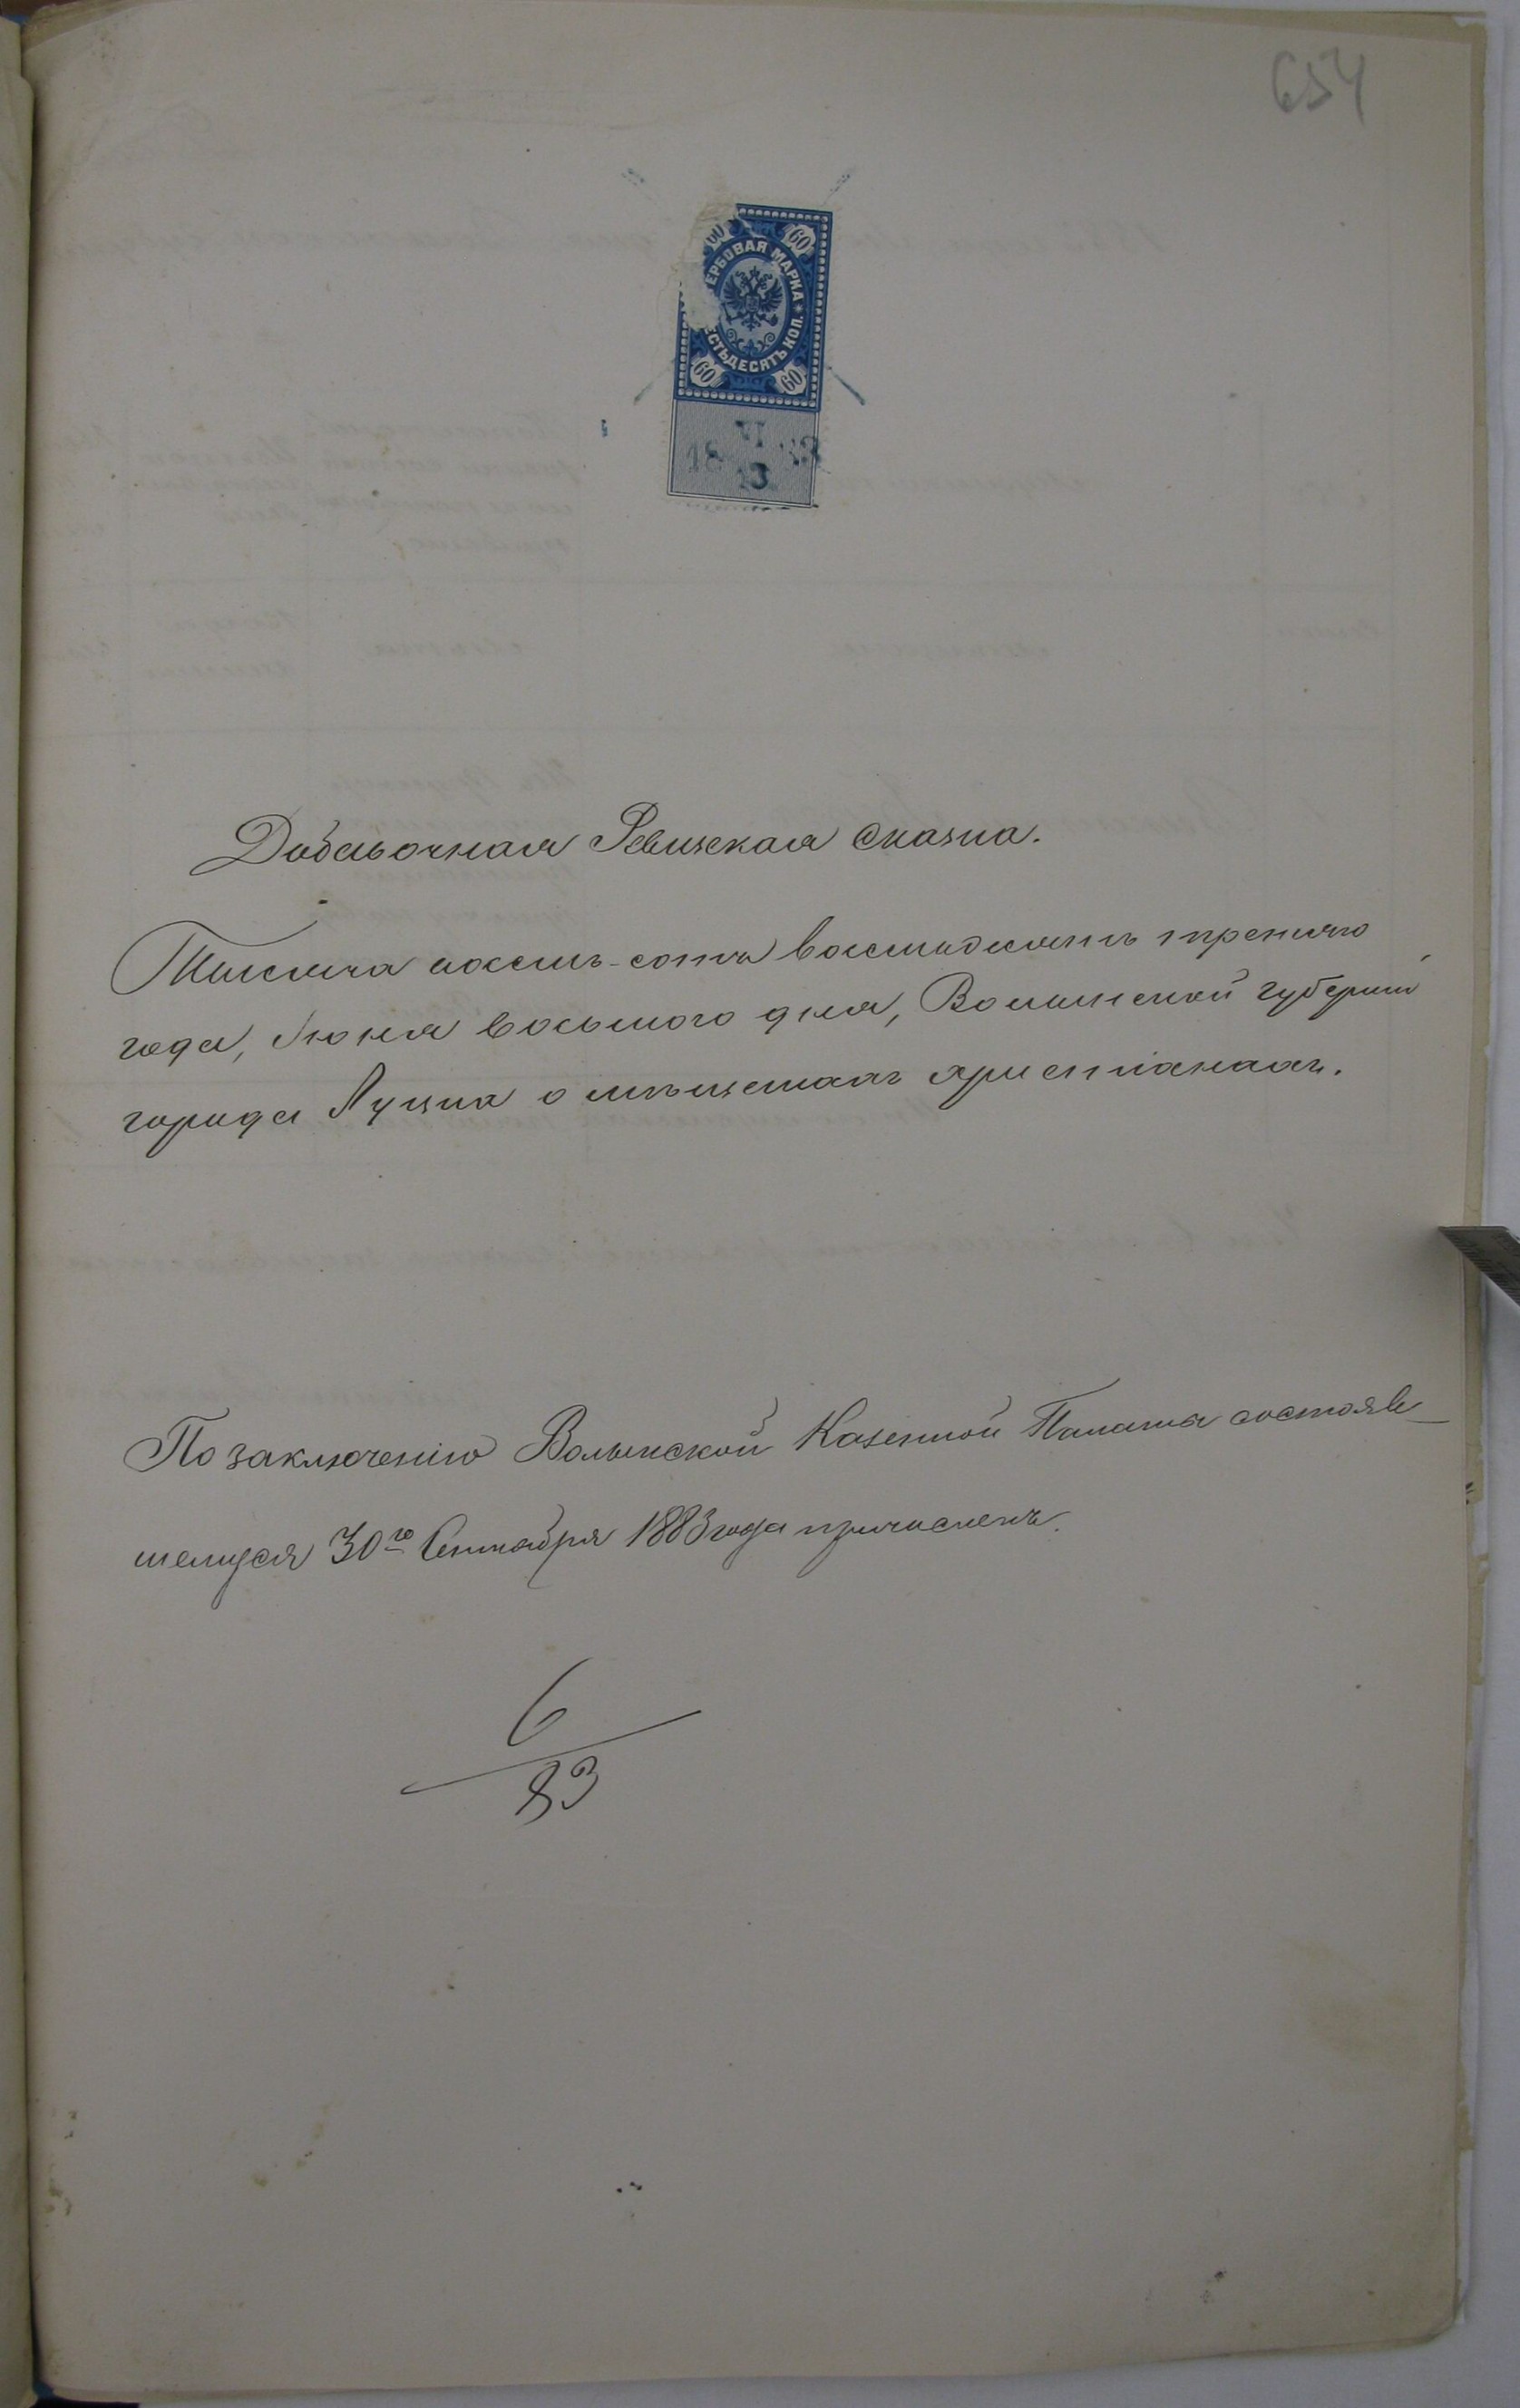 654
60 60
ЕРБОВАЯ МАРКА
СТЬДЕСЯТЪ КОП.
60 60
VI
18 83
13
Добавочная Ревизская Сказка.
Тысяча восемь-сотъ восемьдесятъ третьяго
года, Іюня восьмого дня, Волынской губерніи
города Луцка о мѣщанахъ христіанахъ.
По заключенію Волынской Казенной Палаты состояв-
шемуся 30го Сентября 1883 года причисленъ.
6
83